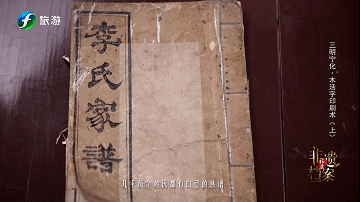 旅游
李氏家譜
三明宁化·木活字印刷术（上）
非遗档案
几乎每个姓氏都有自己的族谱